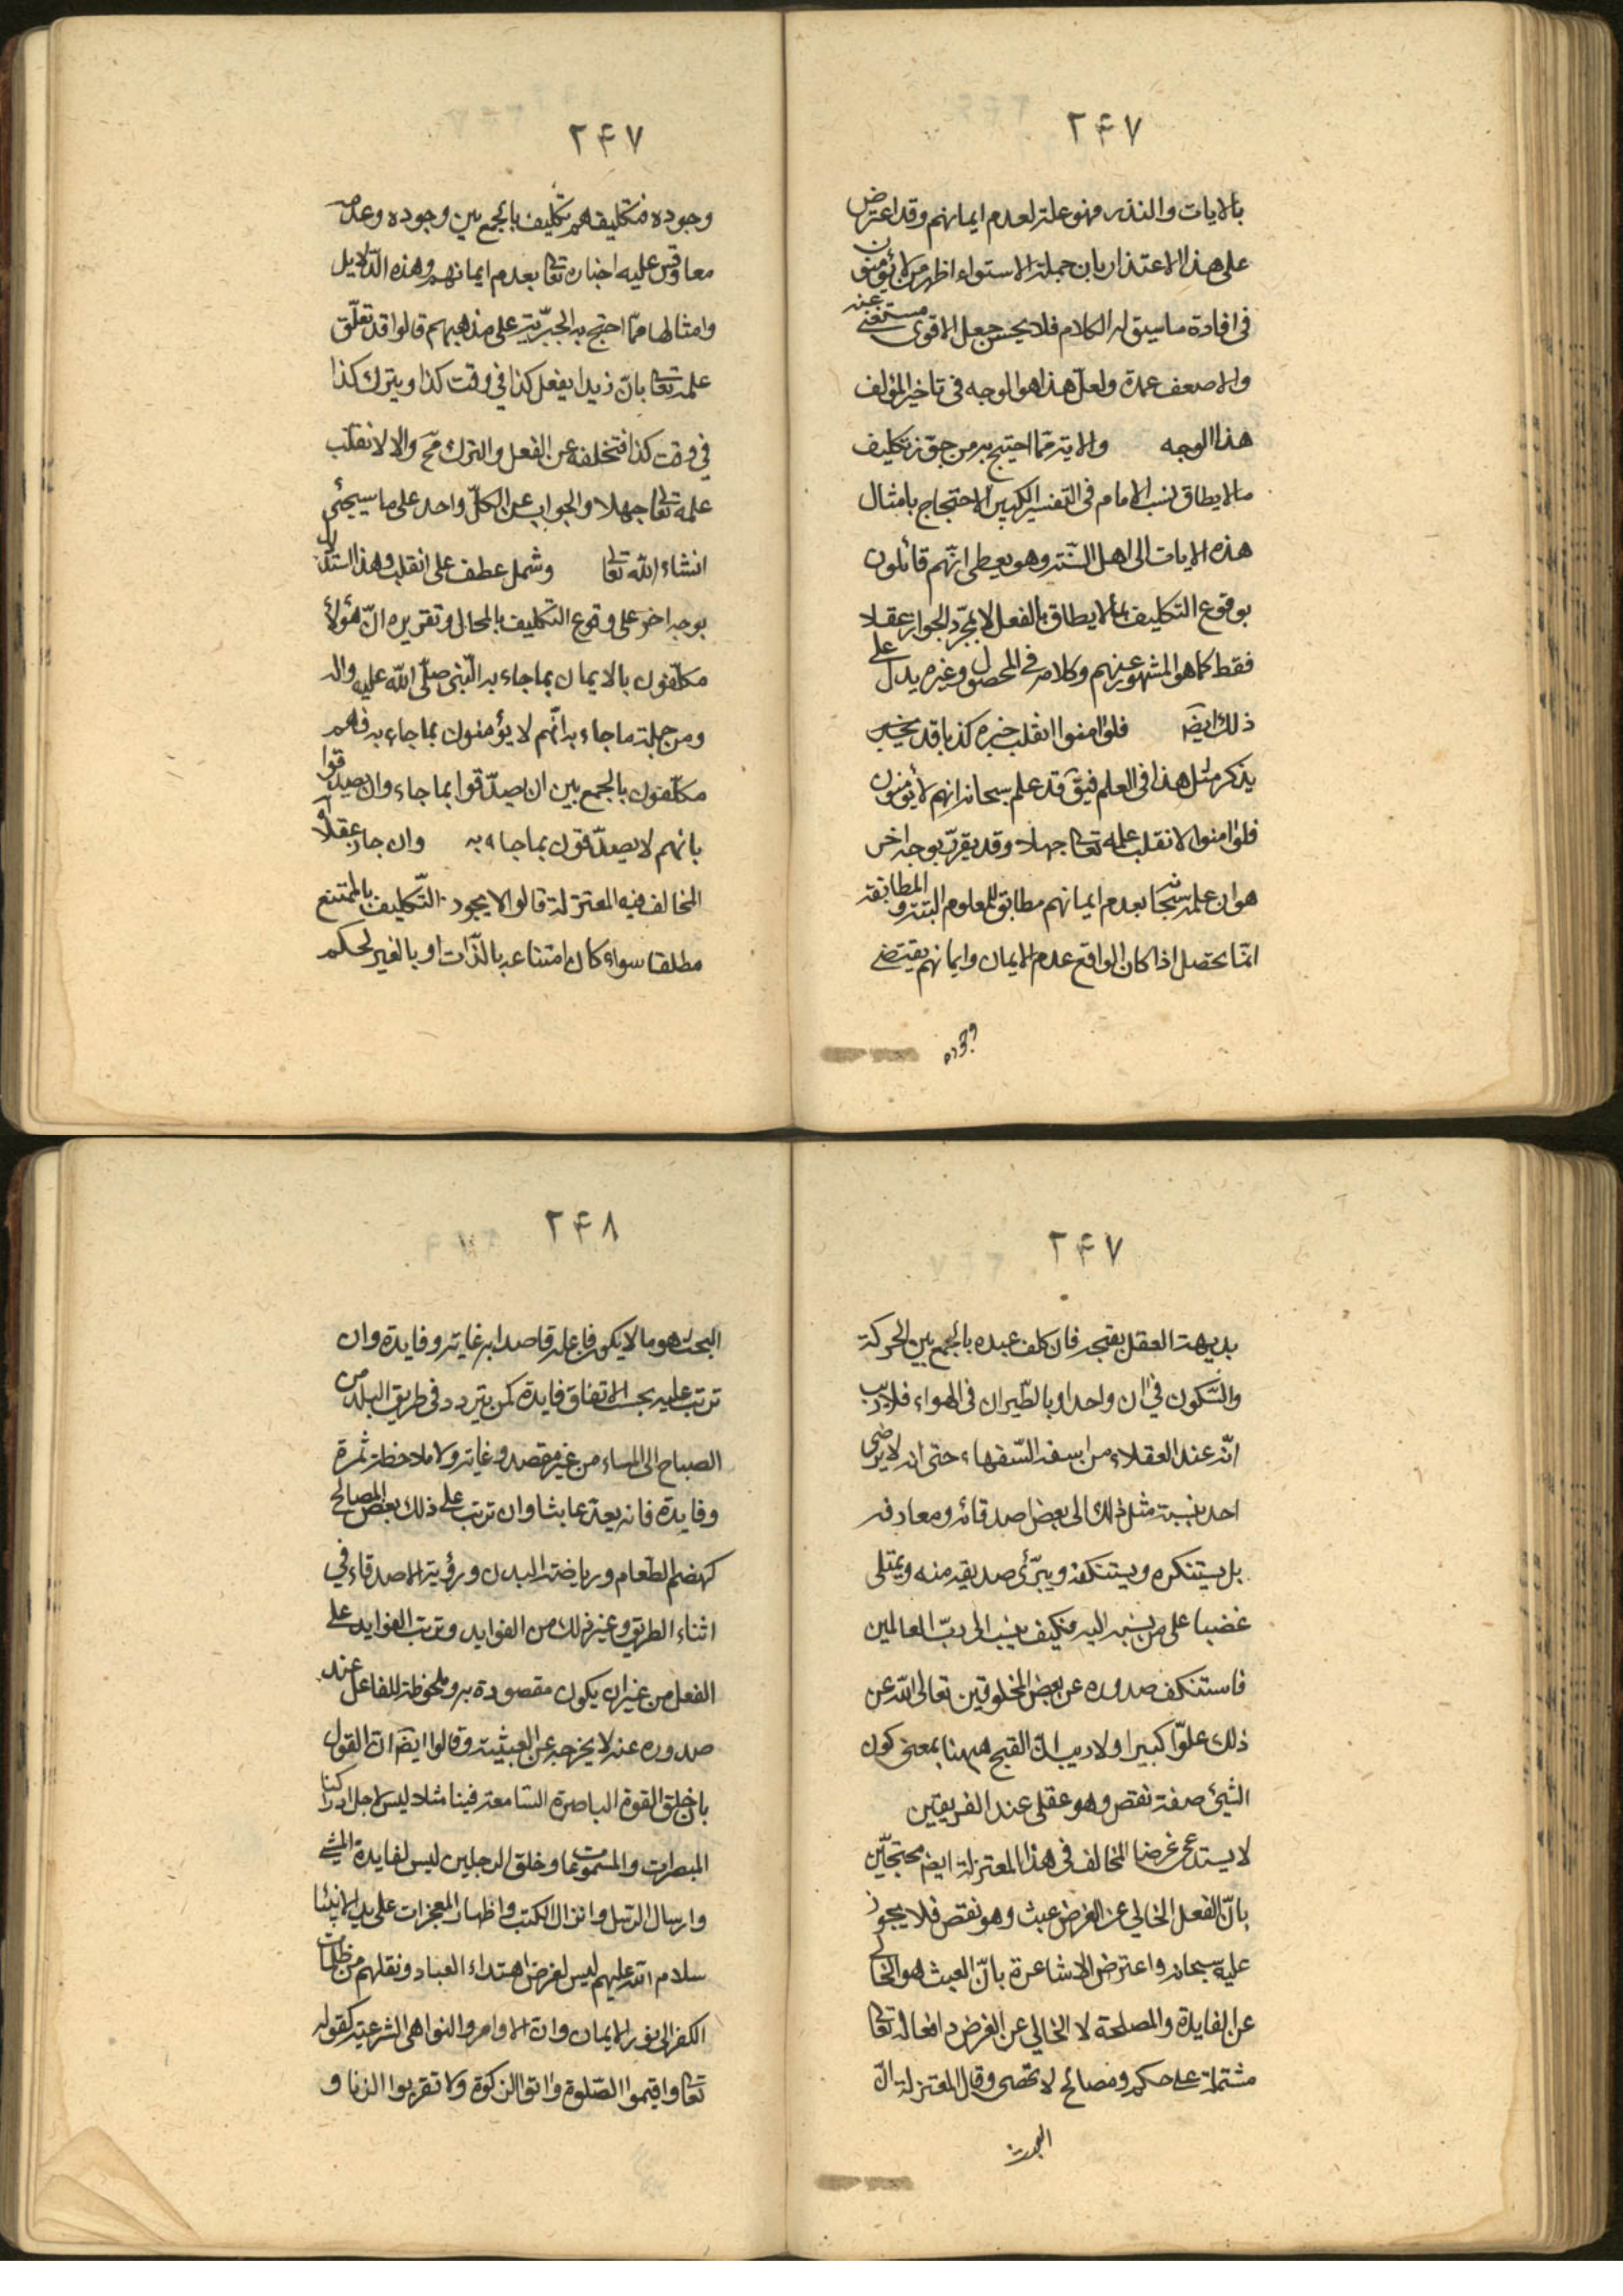 ٢۴٧
بالايات والنذر فهو علة لعدم ايمانهم وقد اعترض
على هذا الاعتذار بان جملة الاستواء اظهر من لا يؤمنون
فى افادة ما سيق له الكلام فلا يحسن جعل الاقوى مستغنى عنه
والاضعف عمدة ولعل هذا هو الوجه فى تاخير المؤلف
هذا الوجه والاية ممّا احتج به من جوّز تكليف
ما لا يطاق نسب الامام فى التفسير الكبير الاحتجاج بامثال
هذه الايات الى اهل السّنة وهو يعطى انّهم قائلون
بوقوع التكليف بما لا يطاق بالفعل لا بمجرّد الجواز عقلا
فقط كما هو المشهور عنهم وكلامه فى المحصول وغيره يدل على
ذلك ايضَ فلو امنوا انقلب خبره كذبا قد
يذكر مثل هذا فى العلم فيقَ قد علم سبحانه انهم لا يؤمنون
فلو امنوا لانقلب علمه تعالى جهلا وقد يقرّر بوجه اخر
هو ان علمه سبحانه بعدم ايمانهم مطابق للمعلوم البتة والمطابقة
انّما تحصل اذا كان الواقع عدم الايمان وايمانهم يقتضى
وجوده
٢۴٧
وجوده فتكليفهم تكليف بالجمع بين وجوده وعدمه
معا وقس عليه اخباره تعالى بعدم ايمانهم وهذه الدّلايل
وامثالها ممّا احتج به الجبّرية على مذهبهم قالوا قد تعلّق
علمه تعالى بانّ زيدا يفعل كذا فى وقت كذا ويترك كذا
فى وقت كذا فتخلفه عن الفعل والترك مح والا لانقلب
علمه تعالى جهلا والجواب عن الكلّ واحد على ما سيجئ
انشاء الله تعالى وشمل عطف على انقلب وهذا استدلال
بوجه اخر على وقوع التكليف بالمحال وتقريره انّ هؤلاء
مكلّفون بالايمان بما جاء به النّبى صلّى الله عليه واله
ومن جملة ما جاء به انّهم لا يؤمنون بما جاء به فهم
مكلّفون بالجمع بين ان يصدّقوا بما جاء وان يصدقوا
بانهم لا يصدّقون بما جاء به وان جاز عقلا
المخالف فيه المعتزلة قالوا لا يجوز التّكليف بالممتنع
مطلقا سواء كان امتناعه بالذّات او بالغير لحكم
٢۴٧
بديهة العقل بقبحه فان كلف عبده بالجمع بين الحركة
والسّكون فى ان واحد او بالطّيران فى الهواء فلا ريب
انّه عند العقلاء من اسفه السّفهاء حتى انه لا يرضى
احد بنسبة مثل ذلك الى بعض اصدقائه ومعارفه
بل يستنكره ويستنكفه ويبرّئ صديقه منه ويمتلى
غضبا على من ينسبه اليه فكيف ينسب الى ربّ العالمين
فاستنكف صدوره عن بعض المخلوقين تعالى الله عن
ذلك علوّا كبيرا ولا ريب انّ القبح ههنا بمعنى كون
الشئ صفة نقص وهو عقلى عند الفريقين
لا يستدعى غرضا المخالف فى هذا المعتزلة ايضَ محتجّين
بانّ الفعل الخالى عن الغرض عبث وهو نقص فلا يجوز
عليه سبحانه واعترض الاشاعرة بانّ العبث هو الخالى
عن الفايدة والمصلحة لا الخالى عن الغرض وافعاله تعالى
مشتملة على حكم ومصالح لا تحصى وقال المعتزلة انّ
العبث
٢۴٨
العبث هو ما لا يكون فاعله قاصدا به غاية وفايدة وان
ترتب عليه بحسب الاتفاق فايدة كمن يتردد فى طريق البلد من
الصباح الى المساء من غير مقصد وغاية ولا ملاحظة ثمرة
وفايدة فانه يعدّ عابثا وان ترتب على ذلك بعض المصالح
كهضم الطّعام ورياضة البدن ورؤية الاصدقاء فى
اثناء الطريق وغير ذلك من الفوايد وترتب الفوايد على
الفعل من غير ان يكون مقصودة به وملحوظة للفاعل عند
صدوره عنه لا يخرجه عن العبثيّة وقالوا ايضَ انّ القول
بان خلق القوة الباصرة السّامعة فينا مثلا ليس لاجل ادراكنا
المبصرات والمسموعات وخلق الرجلين ليس لفايدة المشى
وارسال الرّسل وانزال الكتب واظهار المعجزات على يد الانبياء
سلام الله عليهم ليس لغرض اهتداء العباد ونقلهم من ظلمات
الكفر الى نور الايمان وانّ الاوامر والنواهى الشرعيّة كقوله
تعالى واقيموا الصّلوة واتوا الزكوة ولا تقربوا الزنا و